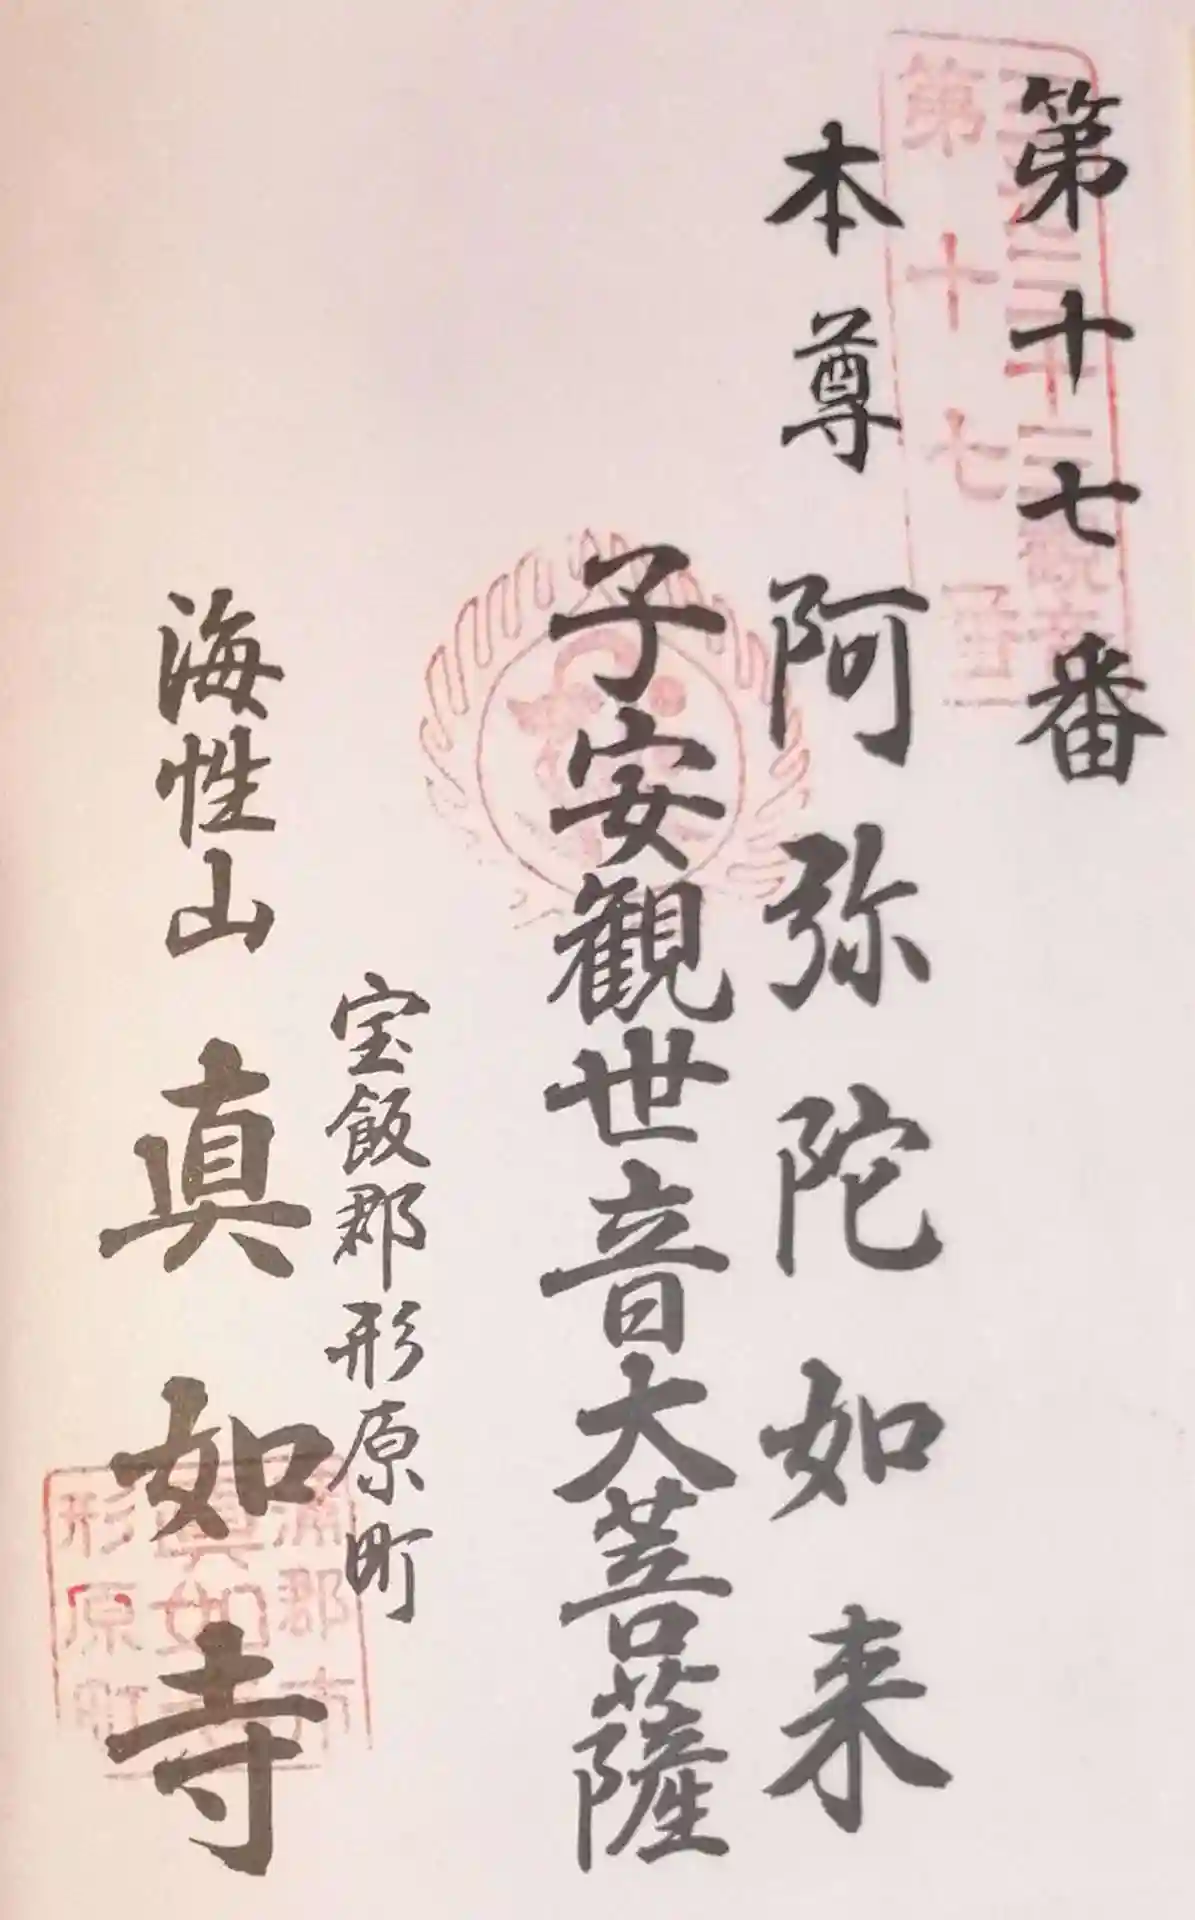 第十七番
本尊 阿弥陀如来
子安観世音大菩薩
宝飯郡形原町
海性山 真如寺
第十七番
蒲郡市
眞如寺
形原町